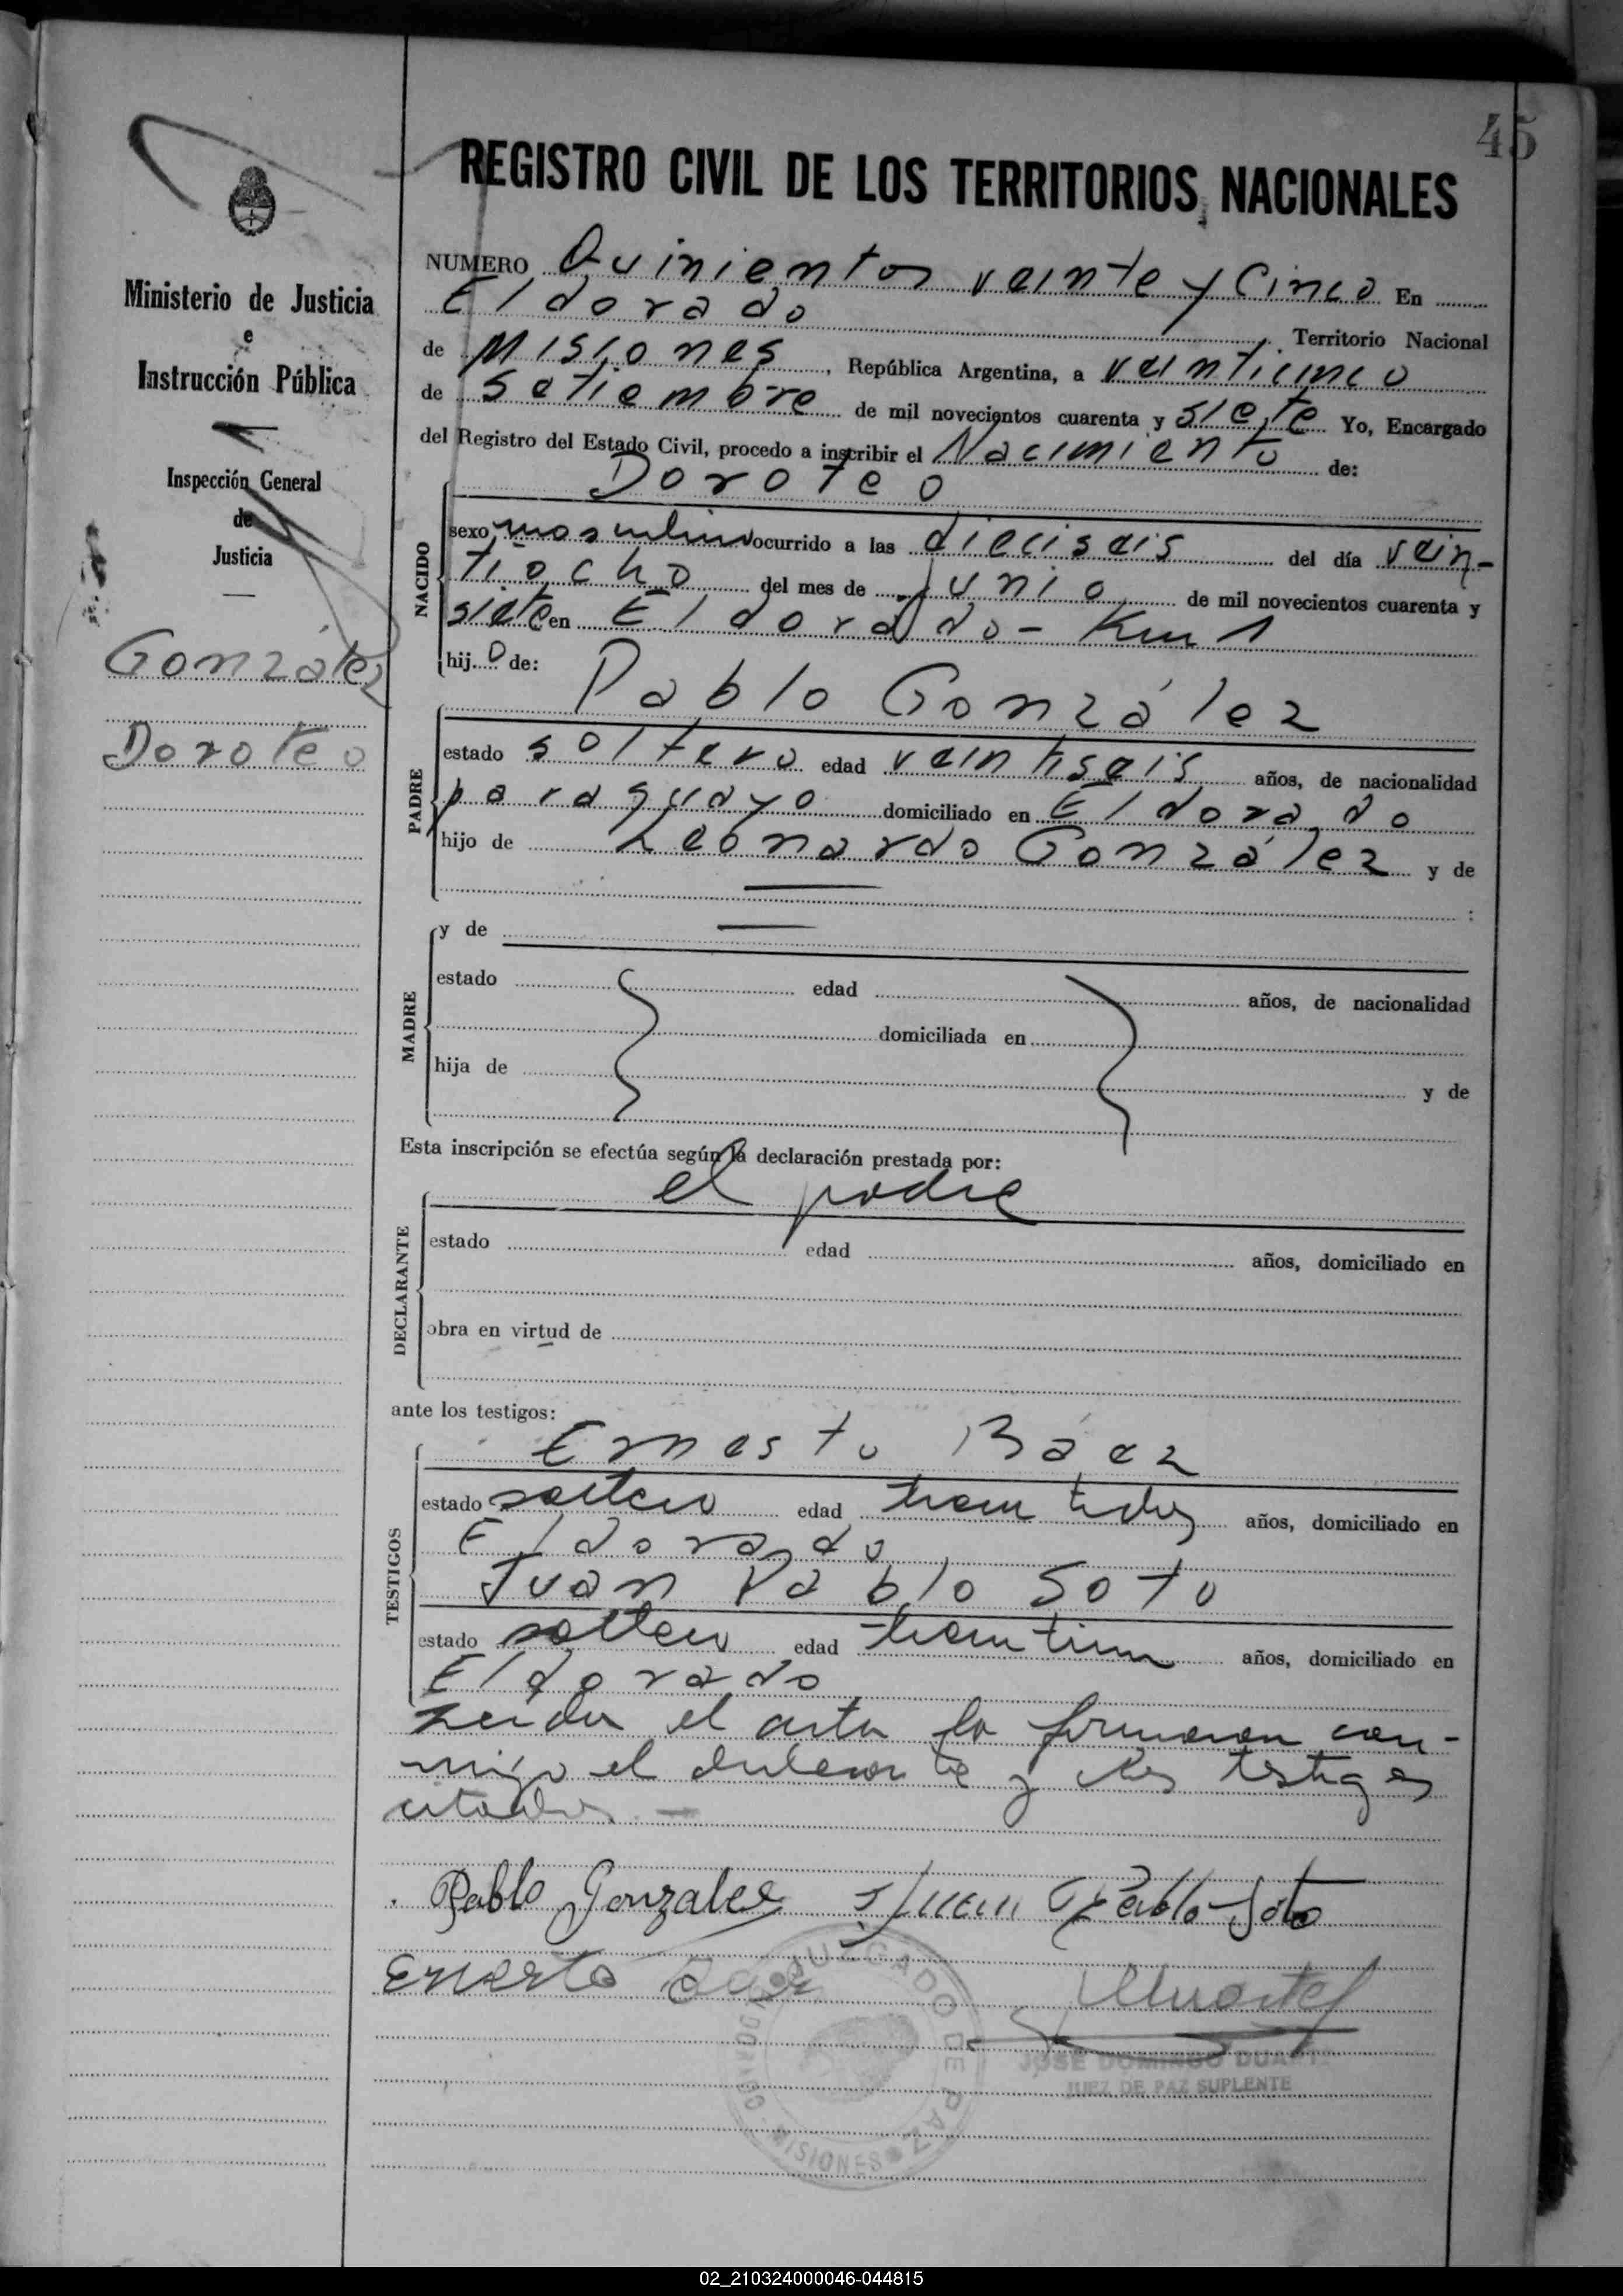 45
REGISTRO CIVIL DE LOS TERRITORIOS NACIONALES
Ministerio de Justicia
e
Instrucción Pública
Inspección General
de
Justicia
González
Doroteo
NUMERO Quinientos veinte y Cinco En
Eldorado Territorio Nacional
de Misiones, República Argentina, a veinticinco
de Setiembre de mil novecientos cuarenta y siete Yo, Encargado
del Registro del Estado Civil, procedo a inscribir el Nacimiento de:
NACIDO
Doroteo
sexo masculino ocurrido a las dieciseis del día vein-
tiocho del mes de Junio de mil novecientos cuarenta y
siete en Eldorado - Km 1
hijo de:
PADRE
Pablo González
estado soltero edad veintiseis años, de nacionalidad
paraguayo domiciliado en Eldorado
hijo de Leonardo González y de
:
MADRE
y de
estado edad años, de nacionalidad
domiciliada en
hija de y de
Esta inscripción se efectúa según la declaración prestada por:
DECLARANTE
el padre
estado edad años, domiciliado en
obra en virtud de
ante los testigos:
TESTIGOS
Ernesto Báez
estado soltero edad treintidos años, domiciliado en
Eldorado
Juan Pablo Soto
estado soltero edad años, domiciliado en
Eldorado
Leida el acta la firmaron con-
migo el declarante y los testigos
citados. -
Pablo Gonzalez Juan Pablo Soto
Ernesto Baez
JUZGADO DE PAZ
ELDORADO - MISIONES
JOSE DOMINGO DUARTE
JUEZ DE PAZ SUPLENTE
02_210324000046-044815